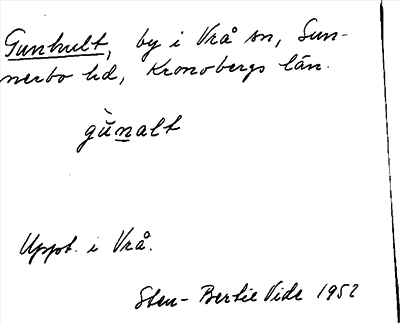 Gunhult, by i Vrå sn, Sun-
nerbo hd, Kronobergs län.
gu̇̀nalt
Uppt. i Vrå.
Sten-Bertil Vide 1952